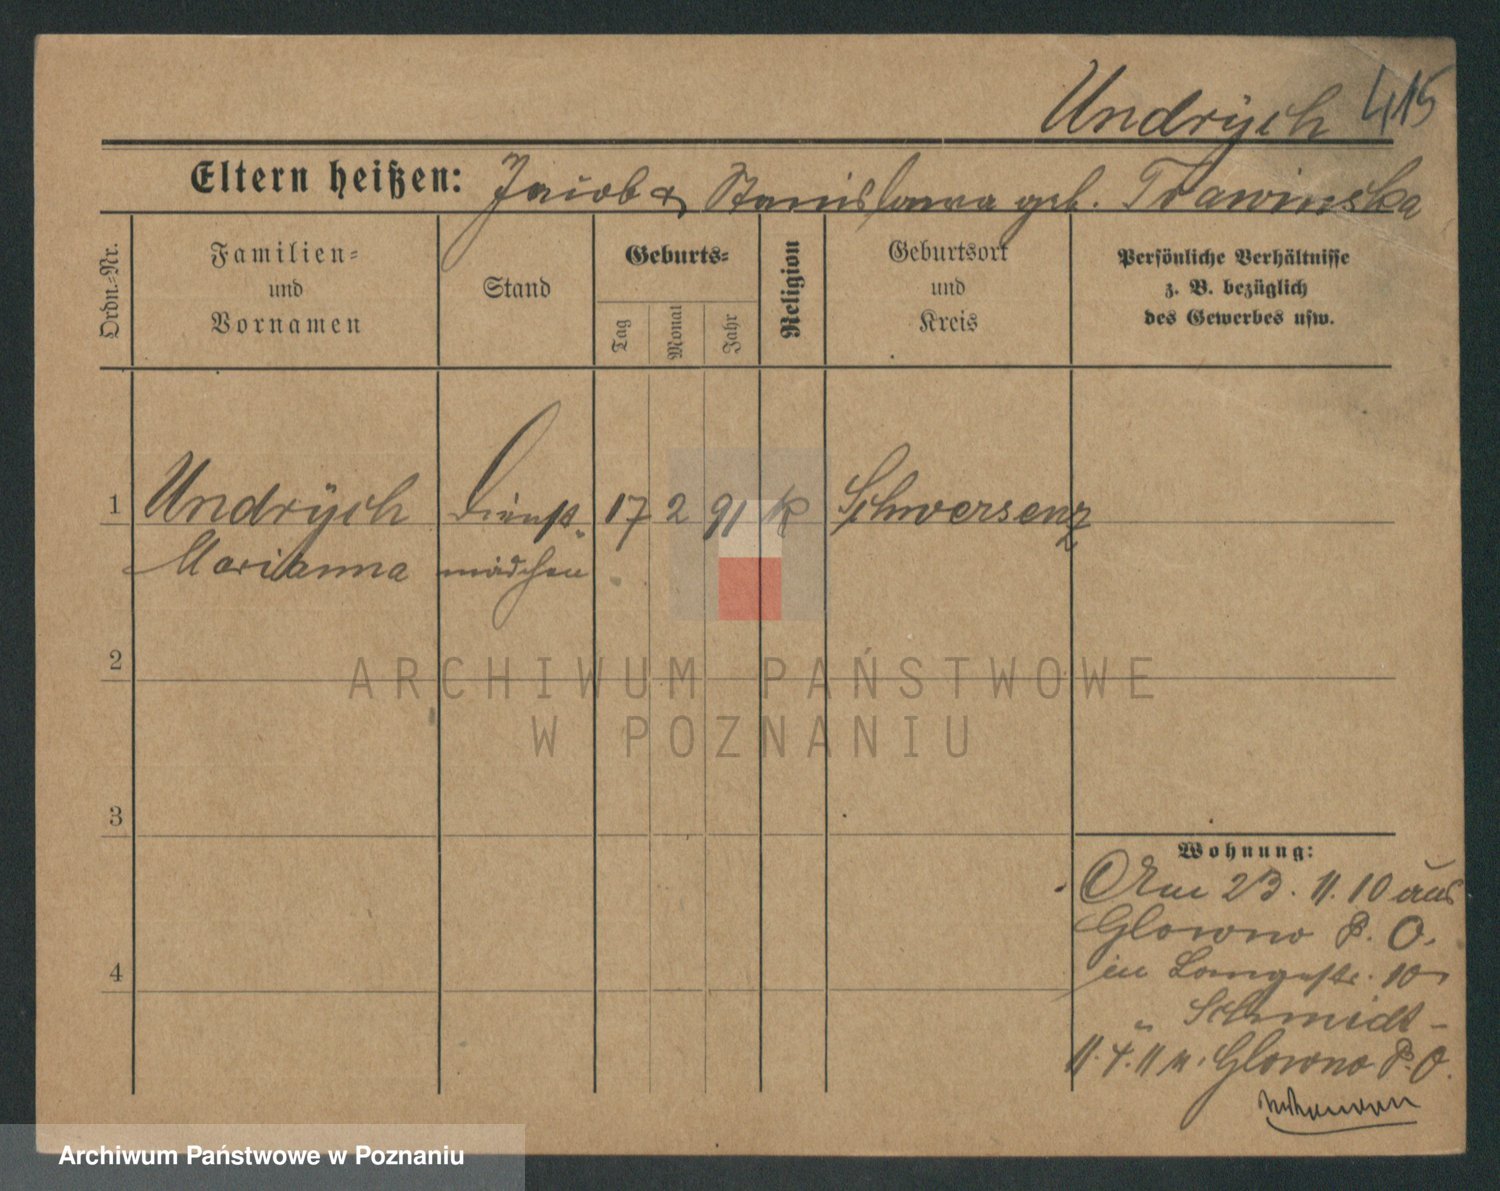 Undrÿch 415
Eltern heißen: Jacob & Stanislawa geb. Trawinska
Ordn.-Nr.
Familien-
und
Vornamen
Stand
Geburts-
Tag
Monat
Jahr
Religion
Geburtsort
und
Kreis
Persönliche Verhältnisse
z. B. bezüglich
des Gewerbes usw.
1 Undrÿch Dienst- 17 2 91 k Schwersenz
Marianna mädchen
2
ARCHIWUM PAŃSTWOWE
W POZNANIU
3
Wohnung:
Am 23. 11. 10 aus
Glowno P. O.
4
in Langestr. 10
" Schmidt -
11. 4. 11 n. Glowno P. O.
Archiwum Państwowe w Poznaniu